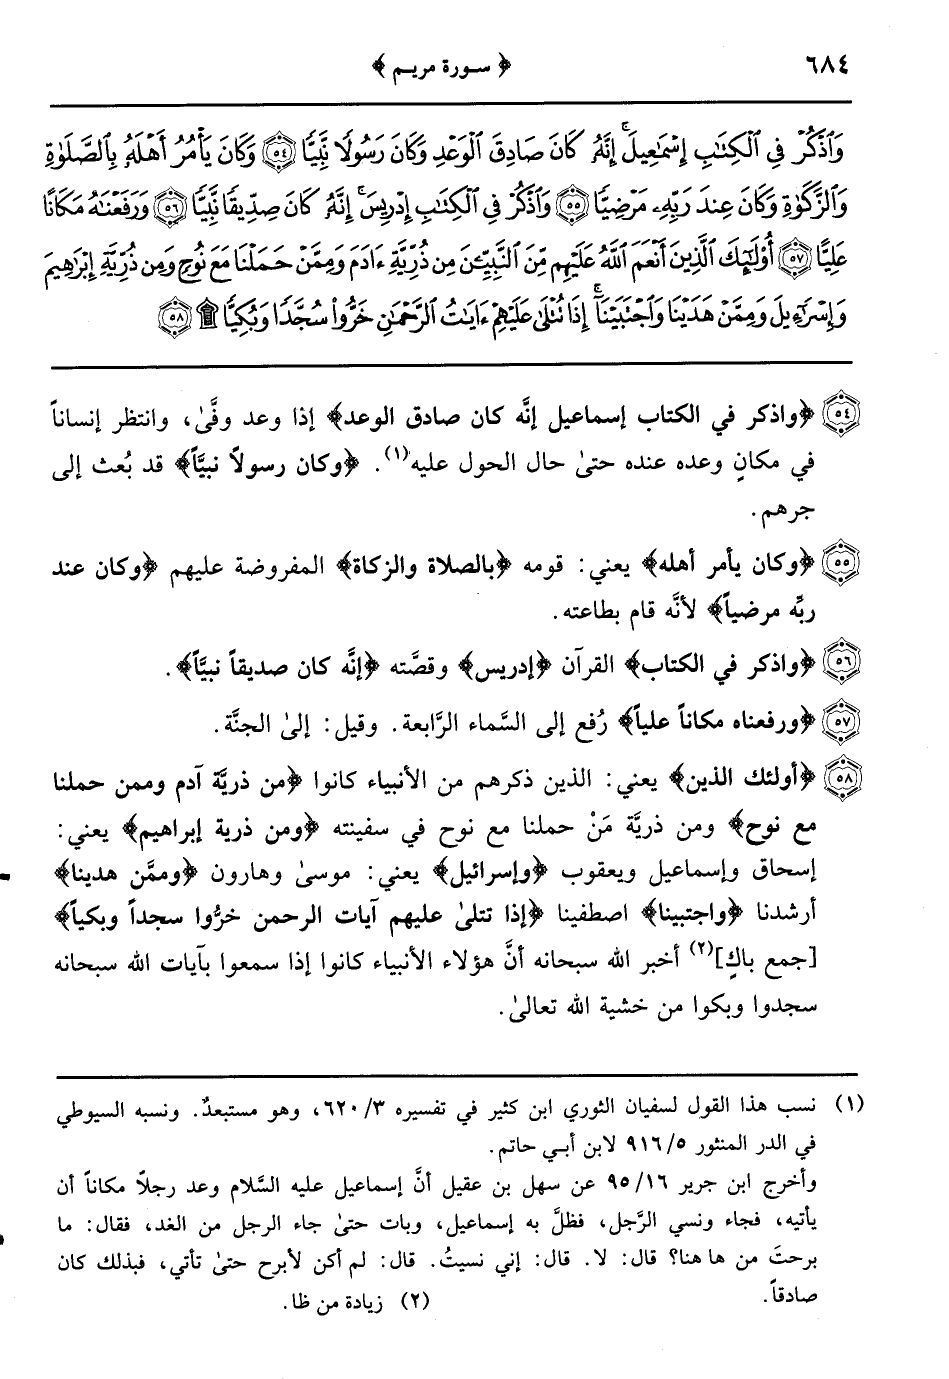 ٦٨٤
﴿ سورة مريم ﴾
وَٱذۡكُرۡ فِي ٱلۡكِتَٰبِ إِسۡمَٰعِيلَۚ إِنَّهُۥ كَانَ صَادِقَ ٱلۡوَعۡدِ وَكَانَ رَسُولٗا نَّبِيّٗا ٥٤ وَكَانَ يَأۡمُرُ أَهۡلَهُۥ بِٱلصَّلَوٰةِ
وَٱلزَّكَوٰةِ وَكَانَ عِندَ رَبِّهِۦ مَرۡضِيّٗا ٥٥ وَٱذۡكُرۡ فِي ٱلۡكِتَٰبِ إِدۡرِيسَۚ إِنَّهُۥ كَانَ صِدِّيقٗا نَّبِيّٗا ٥٦ وَرَفَعۡنَٰهُ مَكَانًا
عَلِيًّا ٥٧ أُوْلَٰٓئِكَ ٱلَّذِينَ أَنۡعَمَ ٱللَّهُ عَلَيۡهِم مِّنَ ٱلنَّبِيِّـۧنَ مِن ذُرِّيَّةِ ءَادَمَ وَمِمَّنۡ حَمَلۡنَا مَعَ نُوحٖ وَمِن ذُرِّيَّةِ إِبۡرَٰهِيمَ
وَإِسۡرَٰٓءِيلَ وَمِمَّنۡ هَدَيۡنَا وَٱجۡتَبَيۡنَآۚ إِذَا تُتۡلَىٰ عَلَيۡهِمۡ ءَايَٰتُ ٱلرَّحۡمَٰنِ خَرُّواْ سُجَّدٗا وَبُكِيّٗا ۩ ٥٨
٥٤ ﴿واذكر في الكتاب إسماعيل إنَّه كان صادق الوعد﴾ إذا وعد وفَّىٰ، وانتظر إنساناً
في مكانٍ وعده عنده حتىٰ حال الحول عليه(١). ﴿وكان رسولاً نبيَّاً﴾ قد بُعث إلى
جرهم.
٥٥ ﴿وكان يأمر أهله﴾ يعني: قومه ﴿بالصلاة والزكاة﴾ المفروضة عليهم ﴿وكان عند
ربِّه مرضياً﴾ لأنَّه قام بطاعته.
٥٦ ﴿واذكر في الكتاب﴾ القرآن ﴿إدريس﴾ وقصَّته ﴿إنَّه كان صديقاً نبيَّاً﴾.
٥٧ ﴿ورفعناه مكاناً علياً﴾ رُفع إلى السَّماء الرَّابعة. وقيل: إلىٰ الجنَّة.
٥٨ ﴿أولئك الذين﴾ يعني: الذين ذكرهم من الأنبياء كانوا ﴿من ذريَّة آدم وممن حملنا
مع نوح﴾ ومن ذريَّة مَنْ حملنا مع نوح في سفينته ﴿ومن ذرية إبراهيم﴾ يعني:
إسحاق وإسماعيل ويعقوب ﴿وإسرائيل﴾ يعني: موسىٰ وهارون ﴿وممَّن هدينا﴾
أرشدنا ﴿واجتبينا﴾ اصطفينا ﴿إذا تتلىٰ عليهم آيات الرحمن خرُّوا سجداً وبكياً﴾
[جمع باكٍ](٢) أخبر الله سبحانه أنَّ هؤلاء الأنبياء كانوا إذا سمعوا بآيات الله سبحانه
سجدوا وبكوا من خشية الله تعالىٰ.
(١) نسب هذا القول لسفيان الثوري ابن كثير في تفسيره ٦٢٠/٣، وهو مستبعدٌ. ونسبه السيوطي
في الدر المنثور ٩١٦/٥ لابن أبـي حاتم.
وأخرج ابن جرير ٩٥/١٦ عن سهل بن عقيل أنَّ إسماعيل عليه السَّلام وعد رجلاً مكاناً أن
يأتيه، فجاء ونسي الرَّجل، فظلَّ به إسماعيل، وبات حتىٰ جاء الرجل من الغد، فقال: ما
برحتَ من ها هنا؟ قال: لا. قال: إني نسيتُ. قال: لم أكن لأبرح حتىٰ تأتي، فبذلك كان
صادقاً.
(٢) زيادة من ظا.